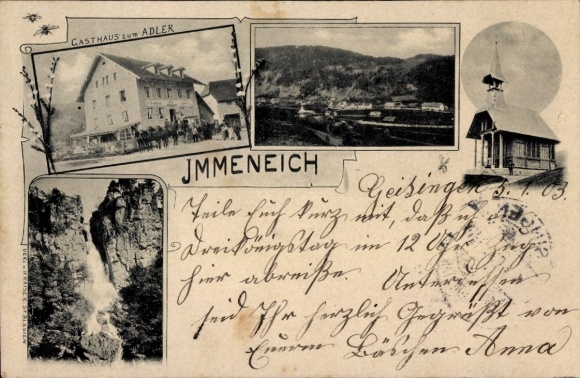 GASTHAUS zum ADLER
JMMENEICH
Geisingen 5.1.03.
Teile Euch kurz mit, daß ich
Dreikönigstag im 12 Uhr Zug
hier abreiße. Unterdessen
seid Ihr herzlich Gegrüßt von
Eurem Bäschen Anna